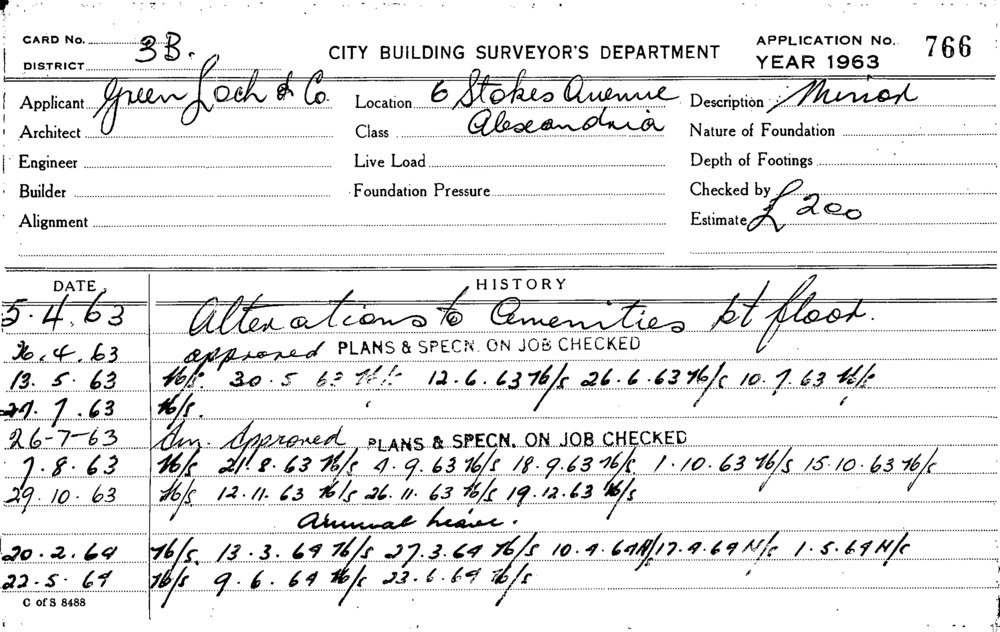 CARD No. 3B. CITY BUILDING SURVEYOR'S DEPARTMENT APPLICATION No. 766
DISTRICT YEAR 1963
Applicant Green Loch & Co. Location 6 Stokes Avenue Description Minor
Architect Class Alexandria Nature of Foundation
Engineer Live Load Depth of Footings
Builder Foundation Pressure Checked by
Alignment Estimate £200
DATE HISTORY
5.4.63 Alterations to Amenities pt floor.
.4.63 approved PLANS & SPECN. ON JOB CHECKED
13.5.63 N/S. 30.5 63 N/S 12.6.63 N/S 26.6.63 N/S 10.7.63 N/S
.7.63 N/S.
26-7-63 Am. Approved PLANS & SPECN. ON JOB CHECKED
7.8.63 N/S 21.8.63 N/S 4.9.63 N/S 18.9.63 N/S 1.10.63 N/S 15.10.63 N/S
29.10.63 N/S 12.11.63 N/S 26.11.63 N/S 19.12.63 N/S
Annual leave.
20.2.64 N/S. 13.3.64 N/S 27.3.64 N/S 10.4.64 N/S 17.4.64 N/S 1.5.64 N/S
22.5.64 N/S 9.6.64 N/S 23.6.64 N/S
C of S 8488